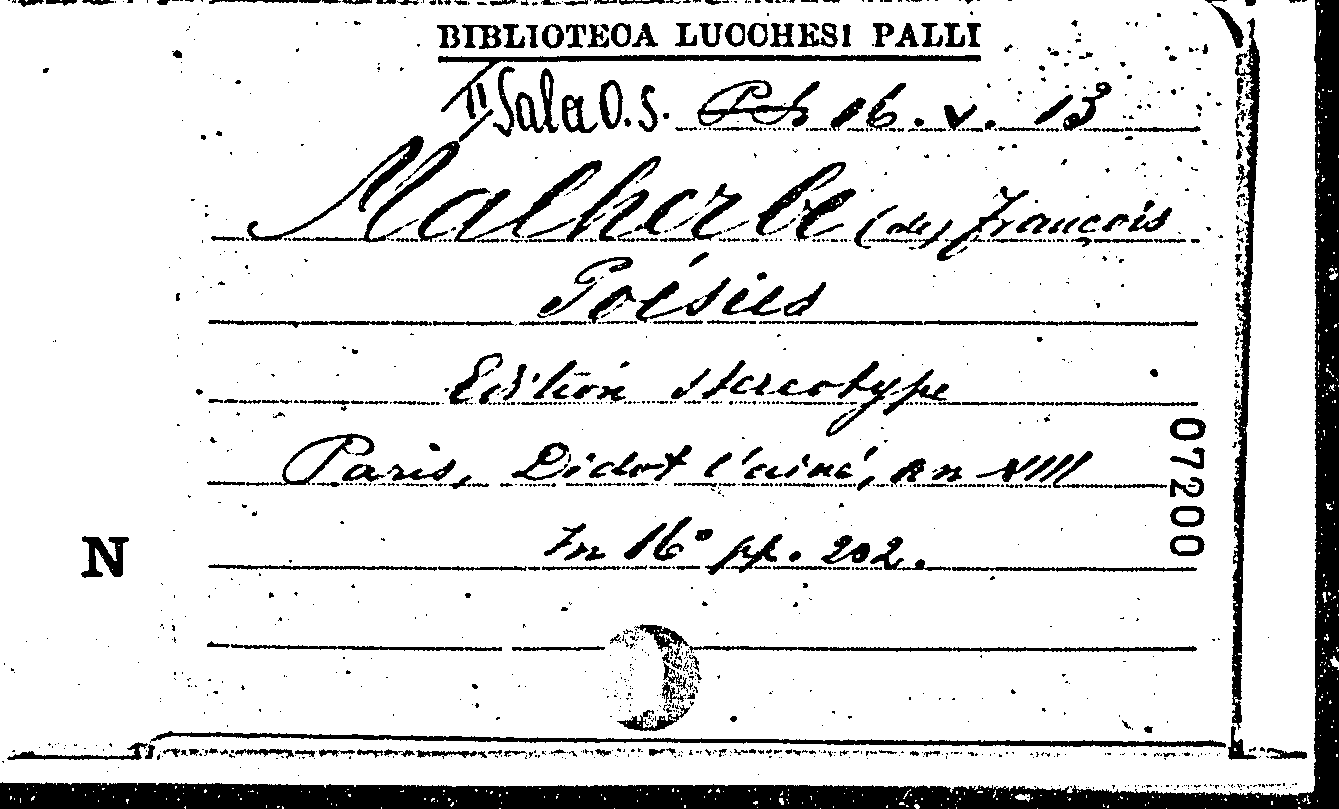 BIBLIOTECA LUCCHESI PALLI
II Sala O.S. 16. v. 13
Malherbe (de) François
Poésies
Edition stereotype
Paris, Didot l'ainé, an VIII
In 16° pp. 202.
N
07200